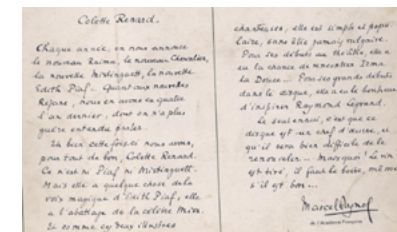 Colette Renard.
Chaque année, on nous annonce
le nouveau Raimu, le nouveau Chevalier,
la nouvelle Mistinguett, la nouvelle
Edith Piaf — Quant aux nouvelles
Réjane, nous en avons eu quatre
l'an dernier, dont on n'a plus
guère entendu parler.
Eh bien cette fois-ci nous avons,
pour tout de bon, Colette Renard.
Ce n'est ni Piaf ni Mistinguett.
Mais elle a quelque chose de la
voix magique d'Edith Piaf, elle
a l'abattage de la célèbre Miss.
Et comme ces deux illustres
chanteuses, elle est simple et popu
laire, sans être jamais vulgaire.
Pour ses débuts au théâtre, elle a
eu la chance de rencontrer Irma
la Douce — Pour ses grands débuts
dans le disque, elle a eu le bonheur
d'inspirer Raymond Legrand.
Le seul ennui, c'est que ce
disque est un chef d'œuvre, et
qu'il sera bien difficile de le
renouveler — Mais quoi! Le vin
est tiré, il faut le boire, même
s'il est bon —
Marcel Pagnol
de l'Académie Française